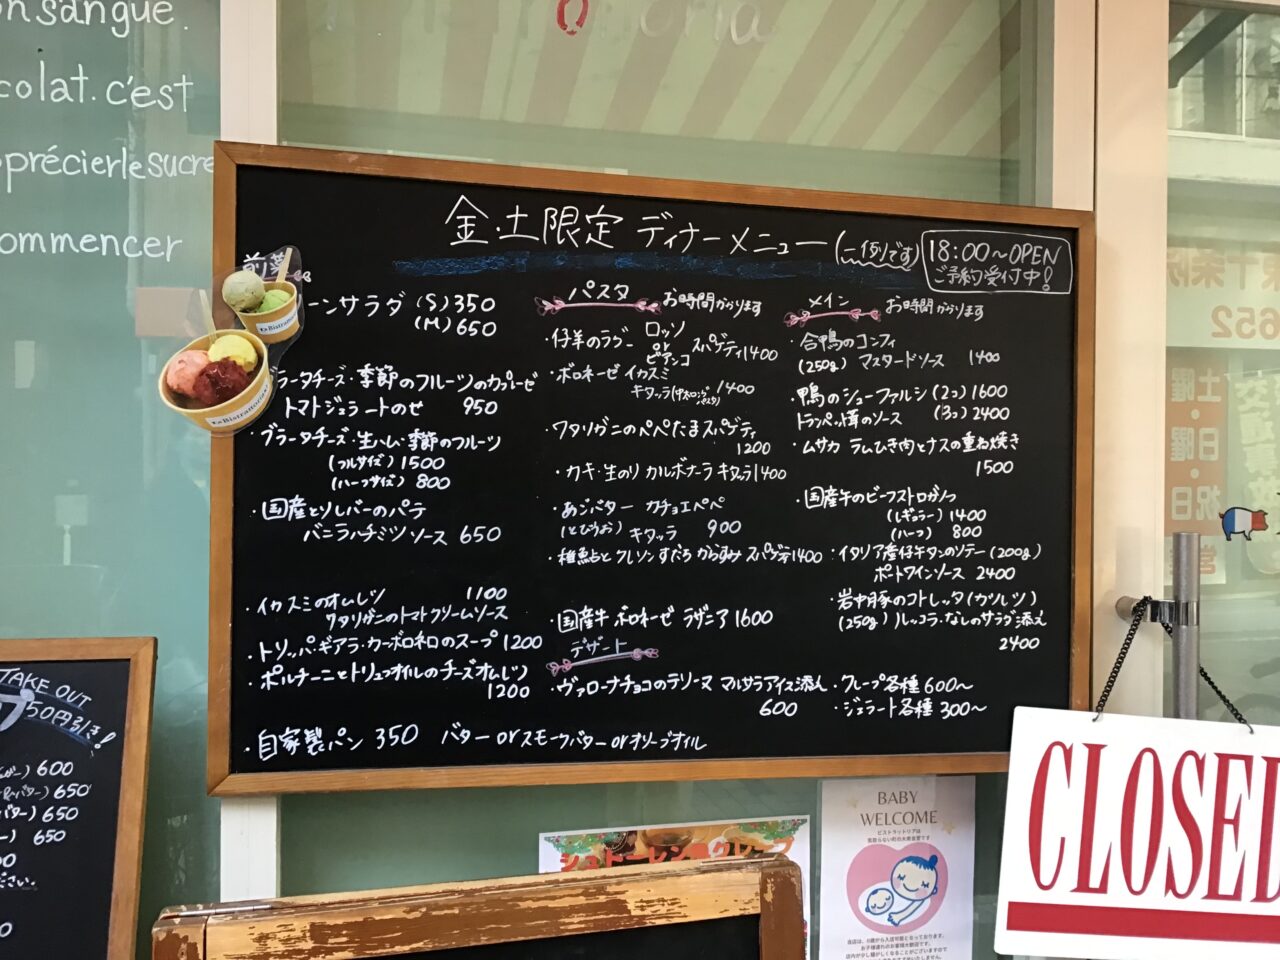 onsangue.
colat. c'est
précierlesucre
ommencer
金・土限定 ディナーメニュー (一例です)
18:00～OPEN
ご予約受付中!
前菜
ーンサラダ (S) 350
(M) 650
ブラータチーズ・季節のフルーツのカプレーゼ
トマトジェラートのせ 950
・ブラータチーズ・生ハム・季節のフルーツ
(フルサイズ) 1500
(ハーフサイズ) 800
・国産とりレバーのパテ
バニラハチミツソース 650
・イカスミのオムレツ 1100
ワタリガニのトマトクリームソース
・トリッパ・ギアラ・カーボロネロのスープ 1200
・ポルチーニとトリュフオイルのチーズオムレツ
1200
・自家製パン 350 バター or スモークバター or オリーブオイル
パスタ お時間かかります
・仔羊のラグー ロッソ or ビアンコ スパゲティ 1400
・ボロネーゼ イカスミ
キタッラ 1400
・ワタリガニのペペたまスパゲティ
1200
・カキ・生のり カルボナーラ キタッラ 1400
・あごバター カチョエペペ
(とびうお) キタッラ 900
・稚鮎とクレソン すだち からすみ スパゲティ 1400
・国産牛 ボロネーゼ ラザニア 1600
デザート
・ヴァローナチョコのテリーヌ マルサラアイス添え
600
・クレープ各種 600～
・ジェラート各種 300～
メイン お時間かかります
・合鴨のコンフィ
(250g) マスタードソース 1400
・鴨のシューファルシ (2コ) 1600
トランペット茸のソース (3コ) 2400
・ムサカ ラムひき肉とナスの重ね焼き
1500
・国産牛のビーフストロガノフ
(レギュラー) 1400
(ハーフ) 800
・イタリア産仔牛タンのソテー (200g)
ポートワインソース 2400
・岩中豚のコトレッタ (カツレツ)
(250g) ルッコラ・なしのサラダ添え
2400
TAKE OUT
50円引き!
600
バター) 650
バター) 650
ー) 650
ださい。
シュトーレン風クレープ
BABY
WELCOME
CLOSED
東十条
652
土曜・日曜・祝日